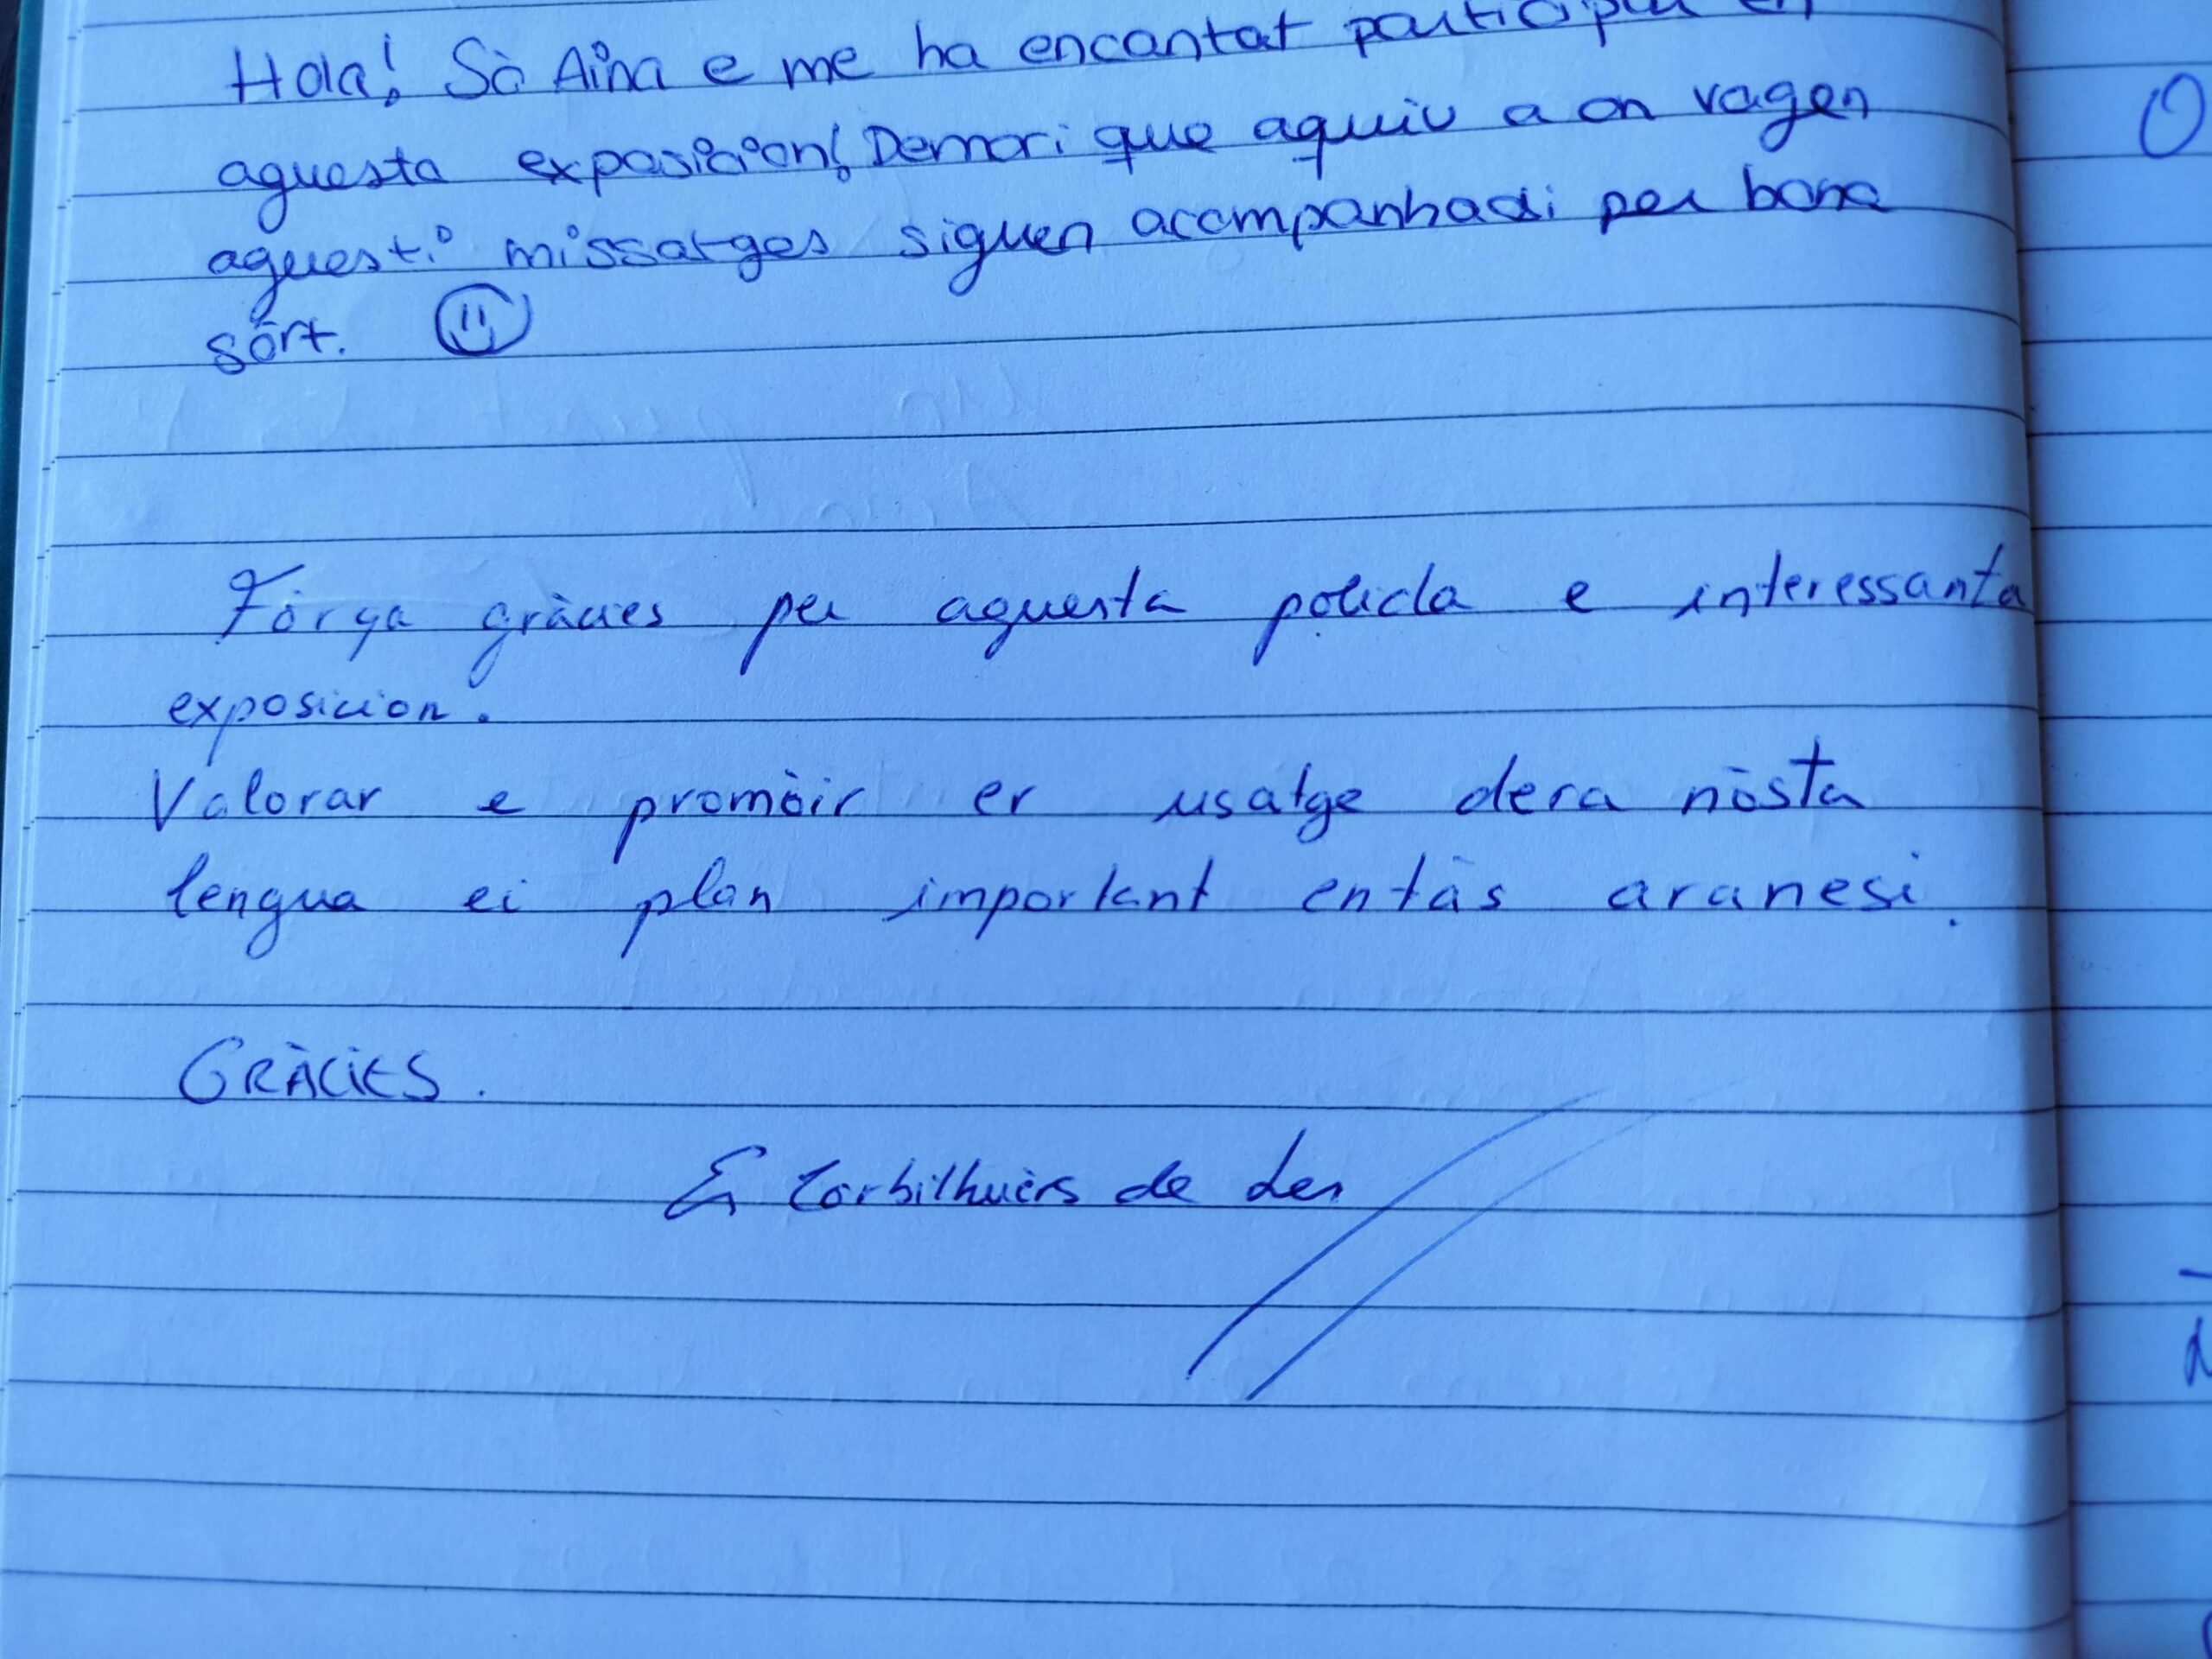 Hola! Sò Aina e me ha encantat participar en
aguesta exposicion! Demori que aquiu a on vagen
aguesti missatges siguen acompanhadi per bona
sòrt.
Fòrça gràcies per aguesta polida e interessanta
exposicion.
Valorar e promòir er usatge dera nòsta
lengua ei plan important entàs aranesi.
GRÀCIES.
Es Corbilhuèrs de Les